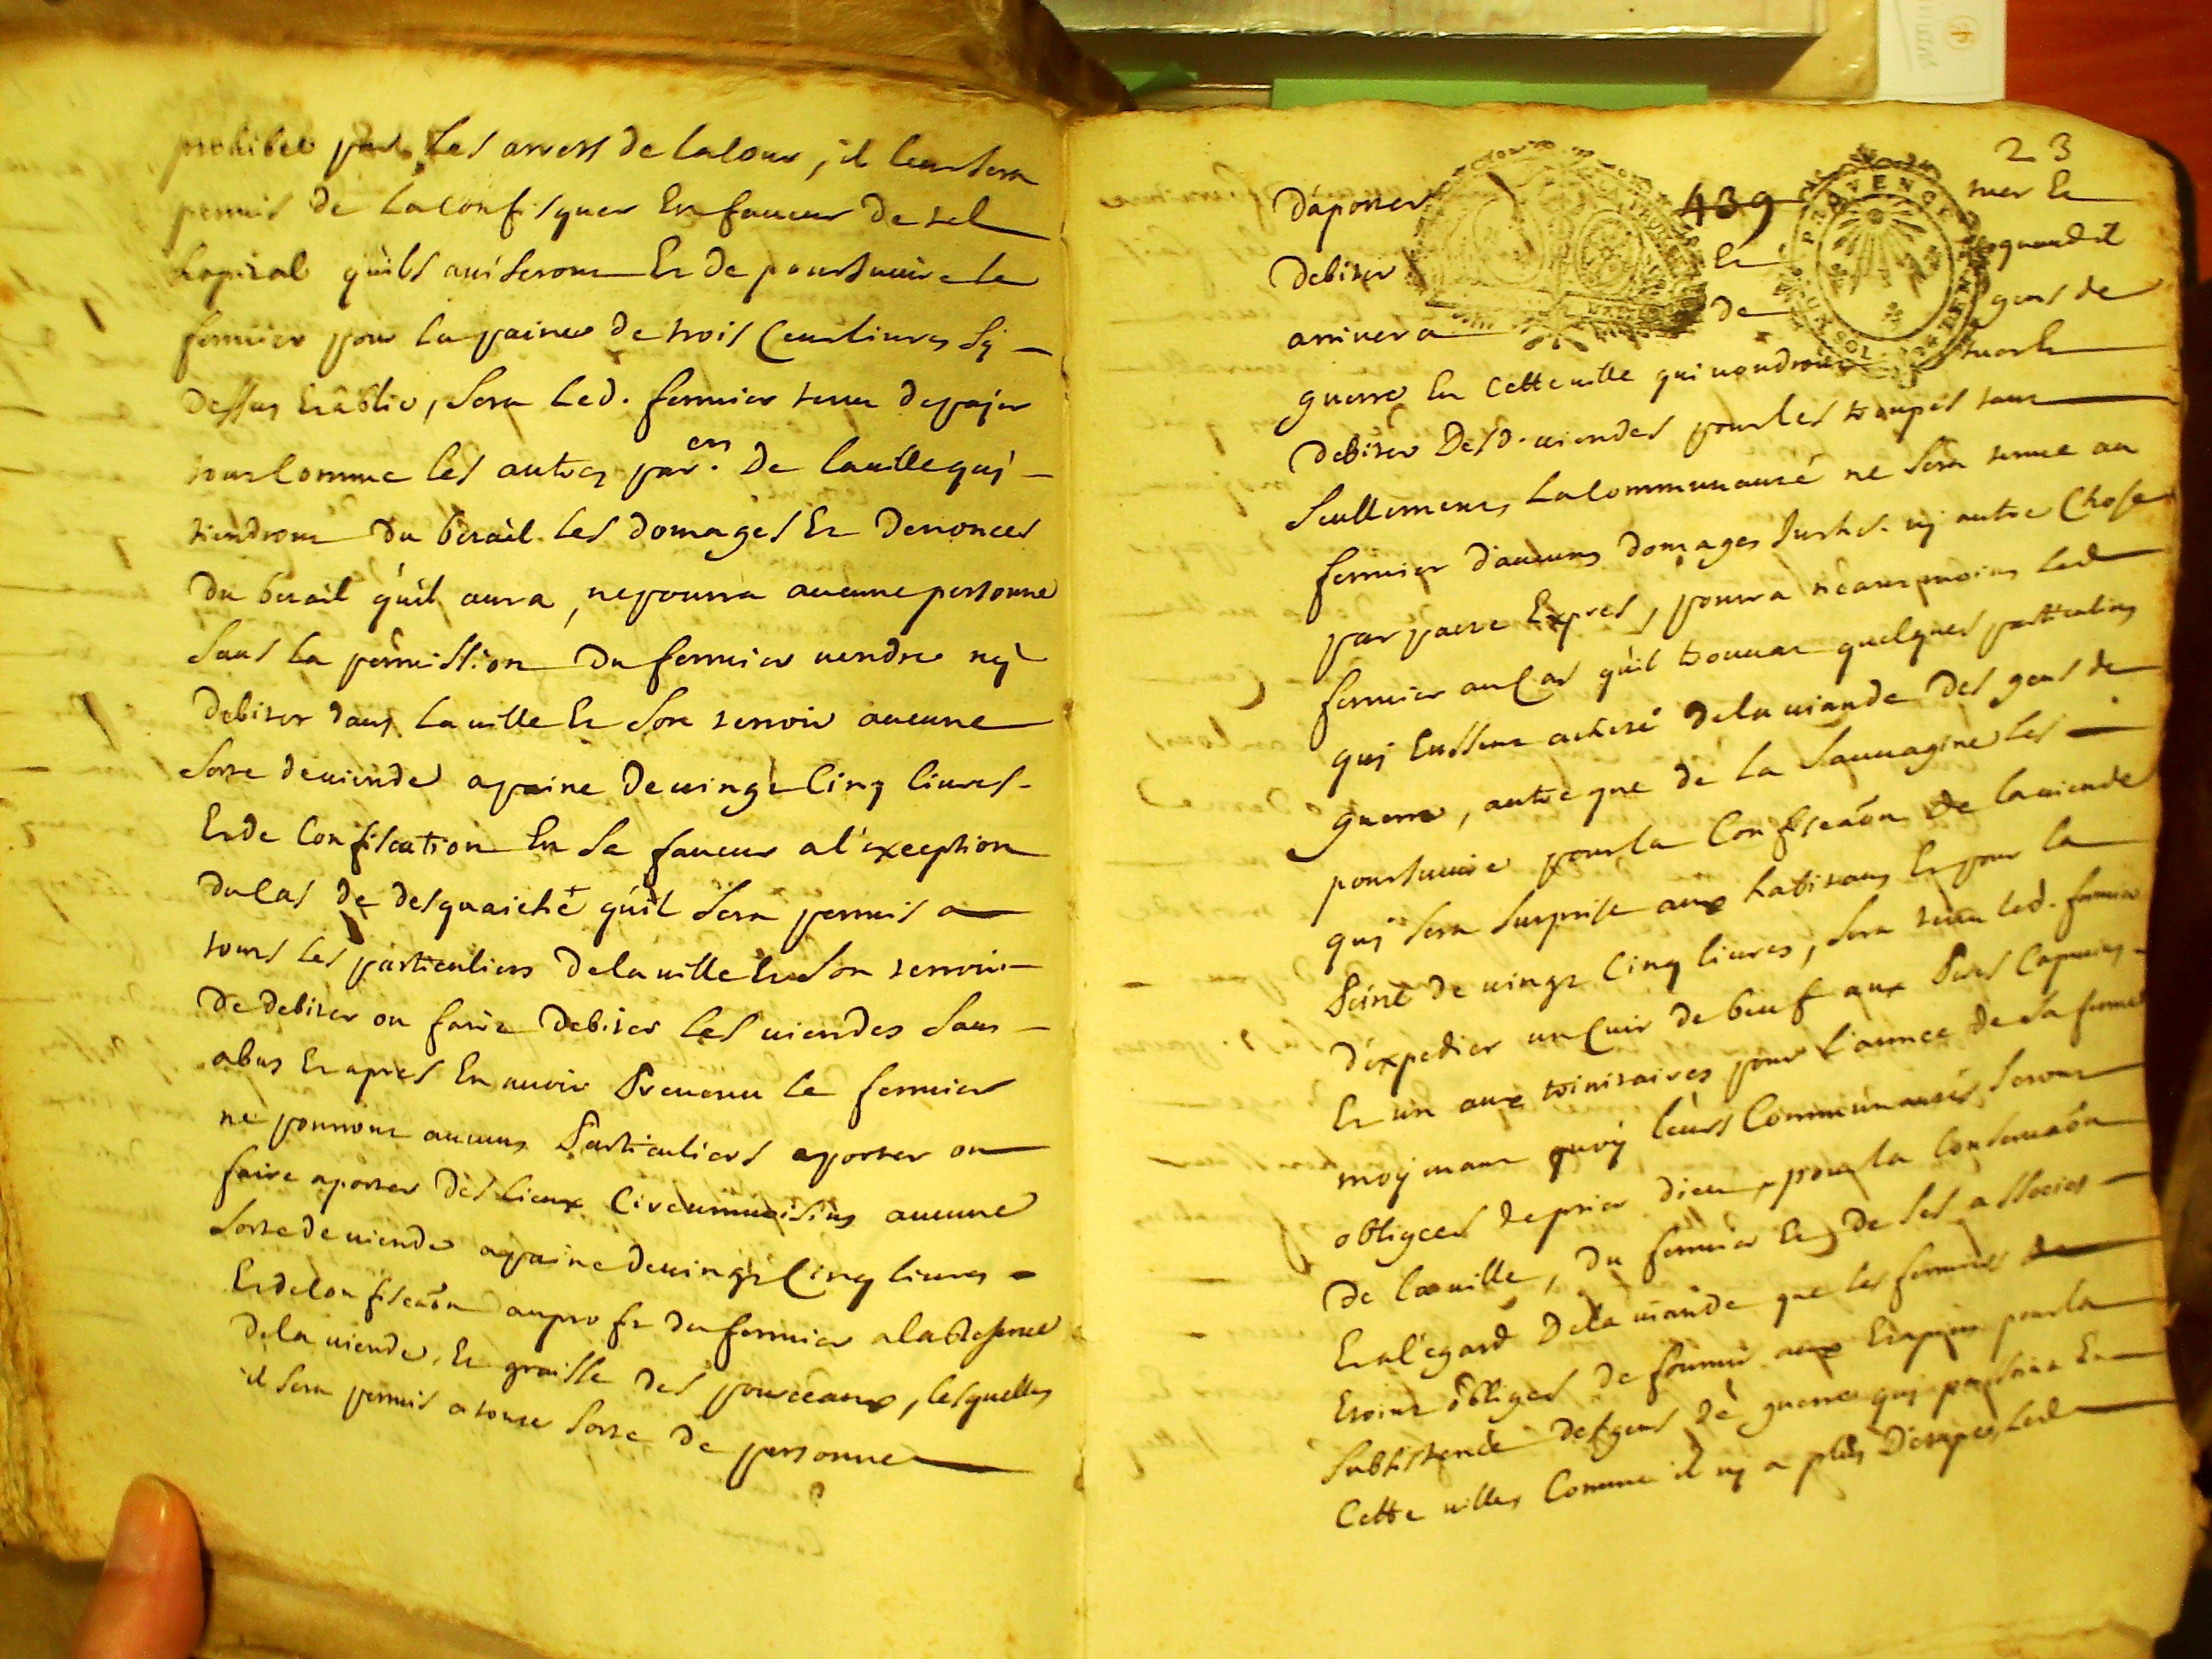 prohibée par les arrests de la Cour, il leur sera
permis de la confisquer en faveur de tel
hopital qu'ils aviseront et de poursuivre le
fermier pour la paine de trois cens livres sy
dessus etablie, sera led. fermier tenu de payer
tout comme les autres par.ers de la ville quj
tiendront du betail les domages et denonces
du betail qu'il aura, ne pourra aucune personne
sans la permission du fermier vendre nÿ
debiter dans la ville et son terroir aucune
sorte de viende a paine de vingt cinq livres
et de confiscation en sa faveur a l'exception
du cas de desquaiché qu'il sera permis a
tous les particuliers de la ville et son terroir
de debiter ou faire debiter les viendes sans
abus et apres en avoir prevenu le fermier
ne pourront aucuns particuliers aporter ou
faire aporter des lieux circumvoisins aucune
sorte de viende a paine de vingt cinq livres
et de confiscaôn au profit du fermier a la reserve
de la viende et graisse des pourceaux, lesquelles
il sera permis a toute sorte de personne
23
439
PROVENCE
d'aporter tuer et
debiter et quand il
arrivera de gens de
guerre en cette ville qui voudront tuer et
debiter desd. viendes pour les troupes tant
seullement, la communauté ne sera tenue au
fermier d'aucuns domages Inths. nj autre chose
par pacte expres, pourra neantmoins led
fermier au cas qu'il trouvat quelques particuliers
quj eussent acheté de la viande des gens de
guerre, autre que de la sauvagine les
poursuivre pour la confiscaôn de la viende
quj sera surprise aux habitans et pour la
peine de vingt cinq livres, sera tenu led. fermier
d'expedier un cuir de beuf aux Peres Capucins
et un aux trinitaires pour l'année de sa ferme
moÿenant quoÿ leurs Communautés seront
obligées de prier dieu pour la conservaôn
de la ville, du fermier et de ses associés
et a l'egard de la viande que les fermiers
etoint obligés de fournir aux Etapiers pour la
subsistence des gens de guerre quj passoint en
cette ville, comme il nj a plus d'etapes, led